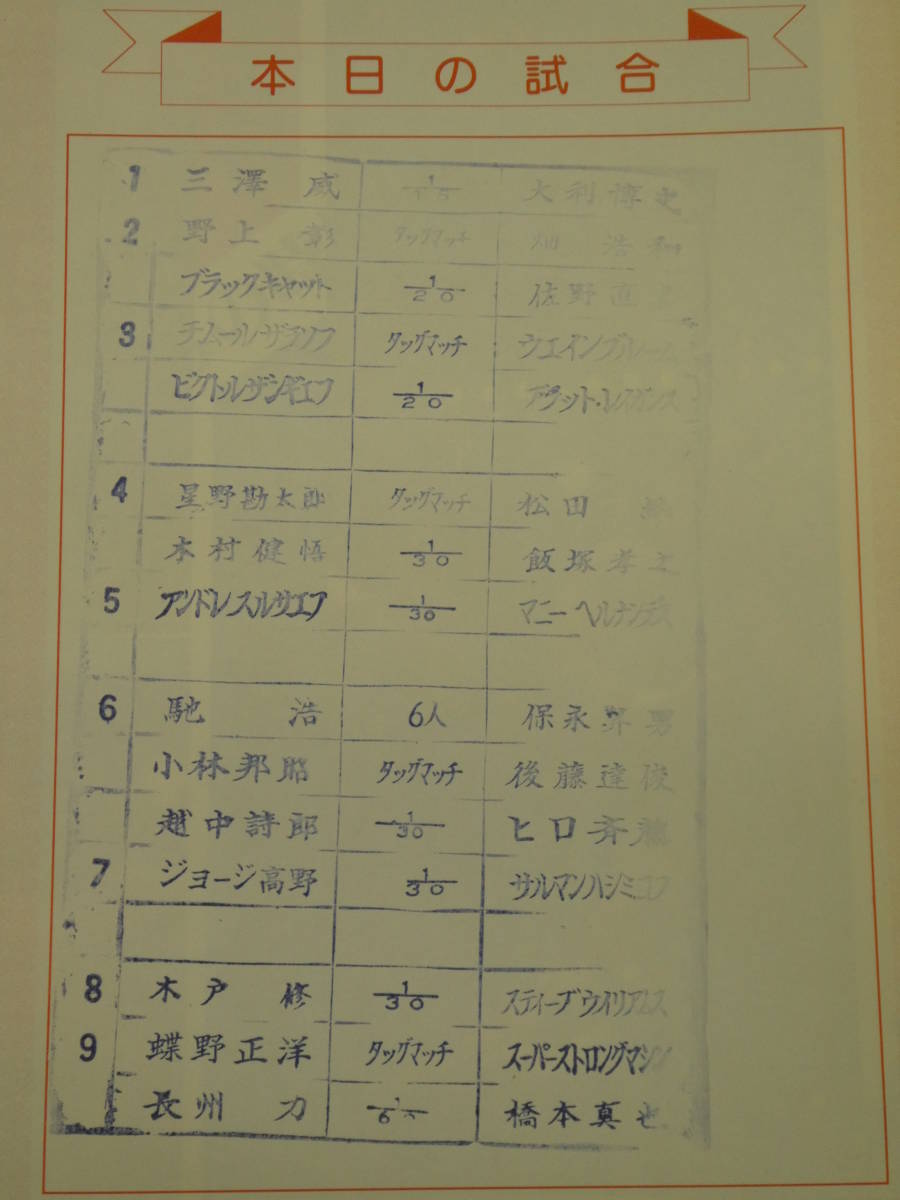 本日の試合
1 三澤 威 1/15 大利博也
2 野上 彰 タッグマッチ 畑 浩和
ブラックキャット 1/20 佐野直
3 チムール・ザラソフ タッグマッチ ウエインブルーム
ビクトルザンギエフ 1/20
4 星野勘太郎 タッグマッチ 松田
木村健悟 1/30 飯塚孝之
5 アンドレスルサエフ 1/30 マニーヘルナンデス
6 馳 浩 6人 保永昇男
小林邦昭 タッグマッチ 後藤達俊
越中詩郎 1/30 ヒロ斉藤
7 ジョージ高野 1/30 サルマンハシミコフ
8 木戸 修 1/30 スティーブウイリアムス
9 蝶野正洋 タッグマッチ スーパーストロングマシン
長州 力 1/60 橋本真也